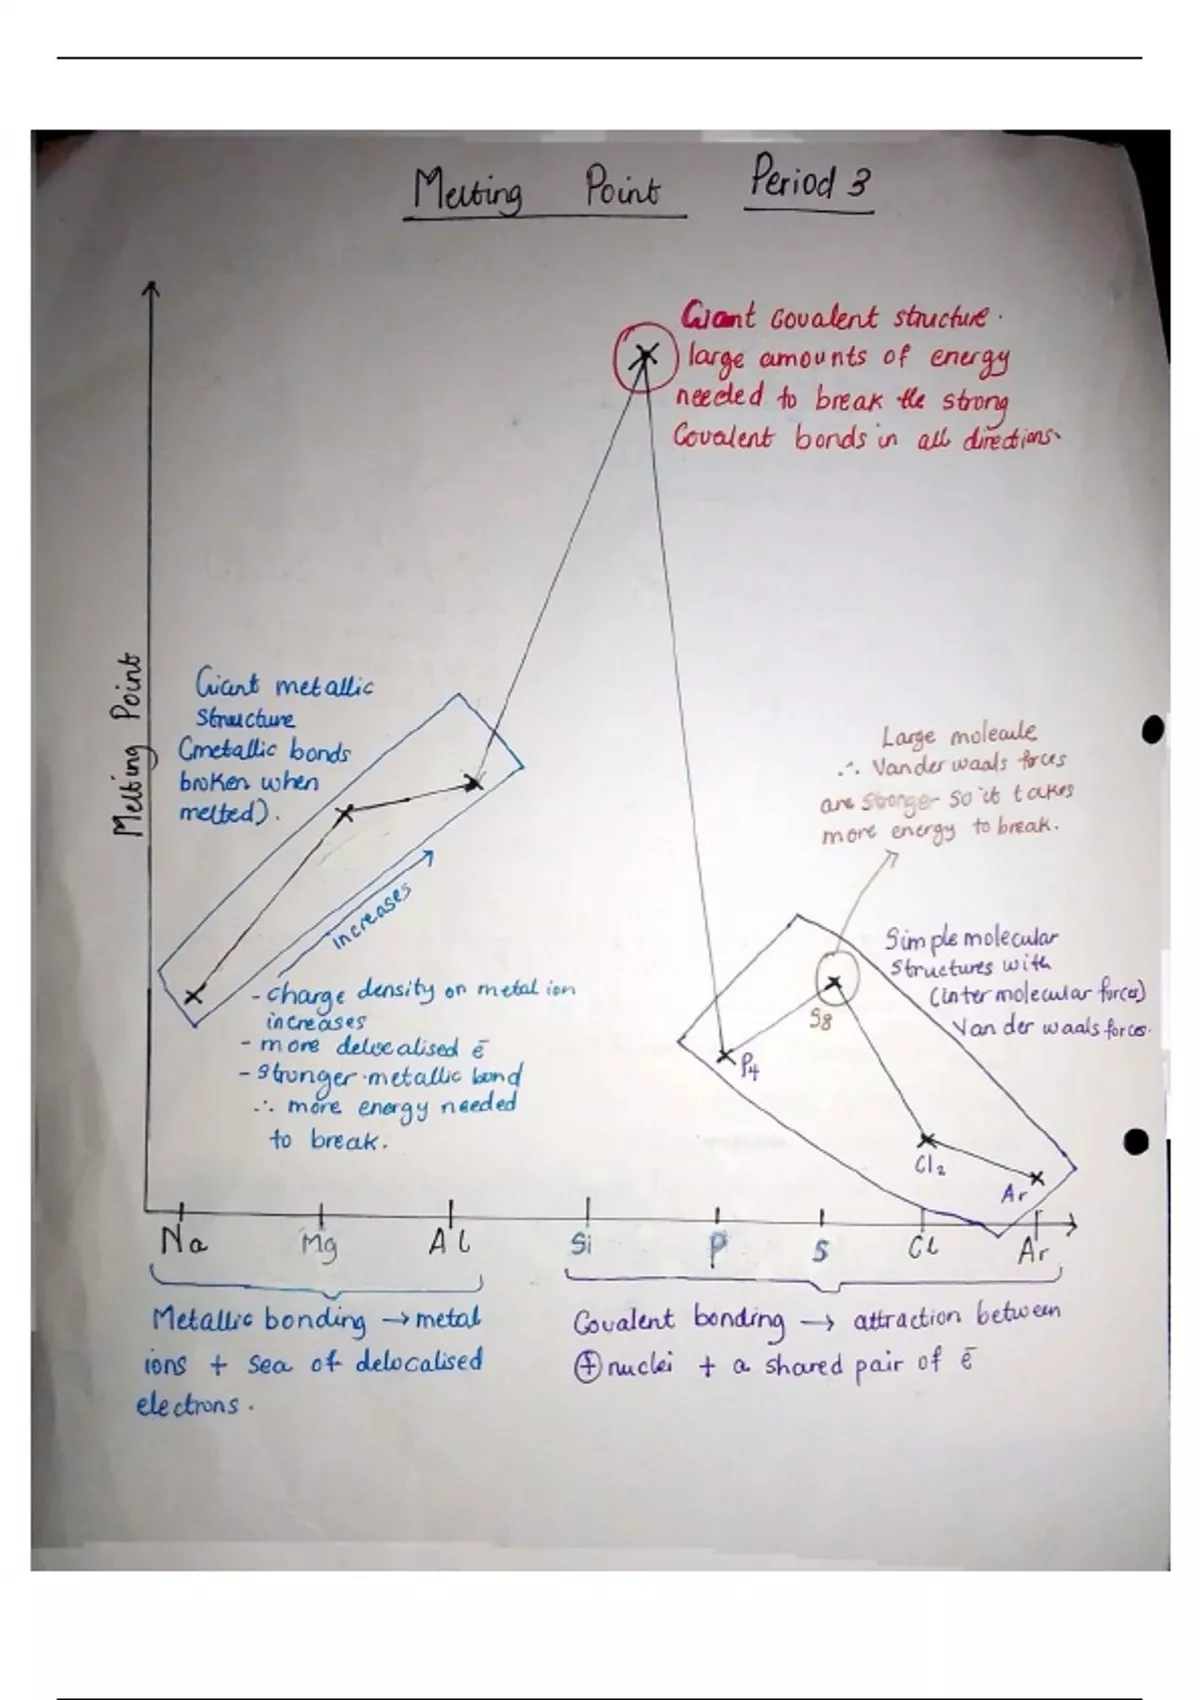 Melting Point Period 3
Giant covalent structure.
large amounts of energy
needed to break the strong
Covalent bonds in all directions.
Melting Point
Giant metallic
structure
(metallic bonds
broken when
melted).
increases
- charge density on metal ion
increases
- more delocalised ē
- stronger metallic bond
∴ more energy needed
to break.
Large molecule
∴ Van der waals forces
are stronger so it takes
more energy to break.
Simple molecular
structures with
(inter molecular forces)
Van der waals forces.
P4
S8
Cl2
Ar
Na Mg Al Si P S Cl Ar
Metallic bonding → metal
ions + sea of delocalised
electrons.
Covalent bonding → attraction between
⊕ nuclei + a shared pair of ē